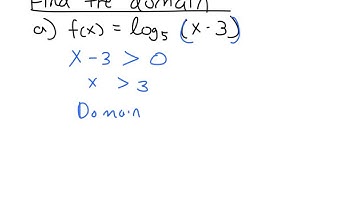 Find the domain
a) f(x) = log₅ (x - 3)
x - 3 > 0
x > 3
Domain